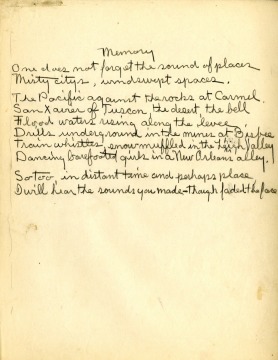 Memory
One does not forget the sound of places
Misty citys, windswept spaces.
The Pacific against the rocks at Carmel.
San Xavier of Tuscon, the desert, the bell
Flood waters rising along the levee
Drills underground in the mines at Bisbee
Train whistles, snow muffled in the high valley
Dancing barefooted girls in a New Orleans alley.
So too, in distant time and perhaps place
I will hear the sounds you made—though faded the face